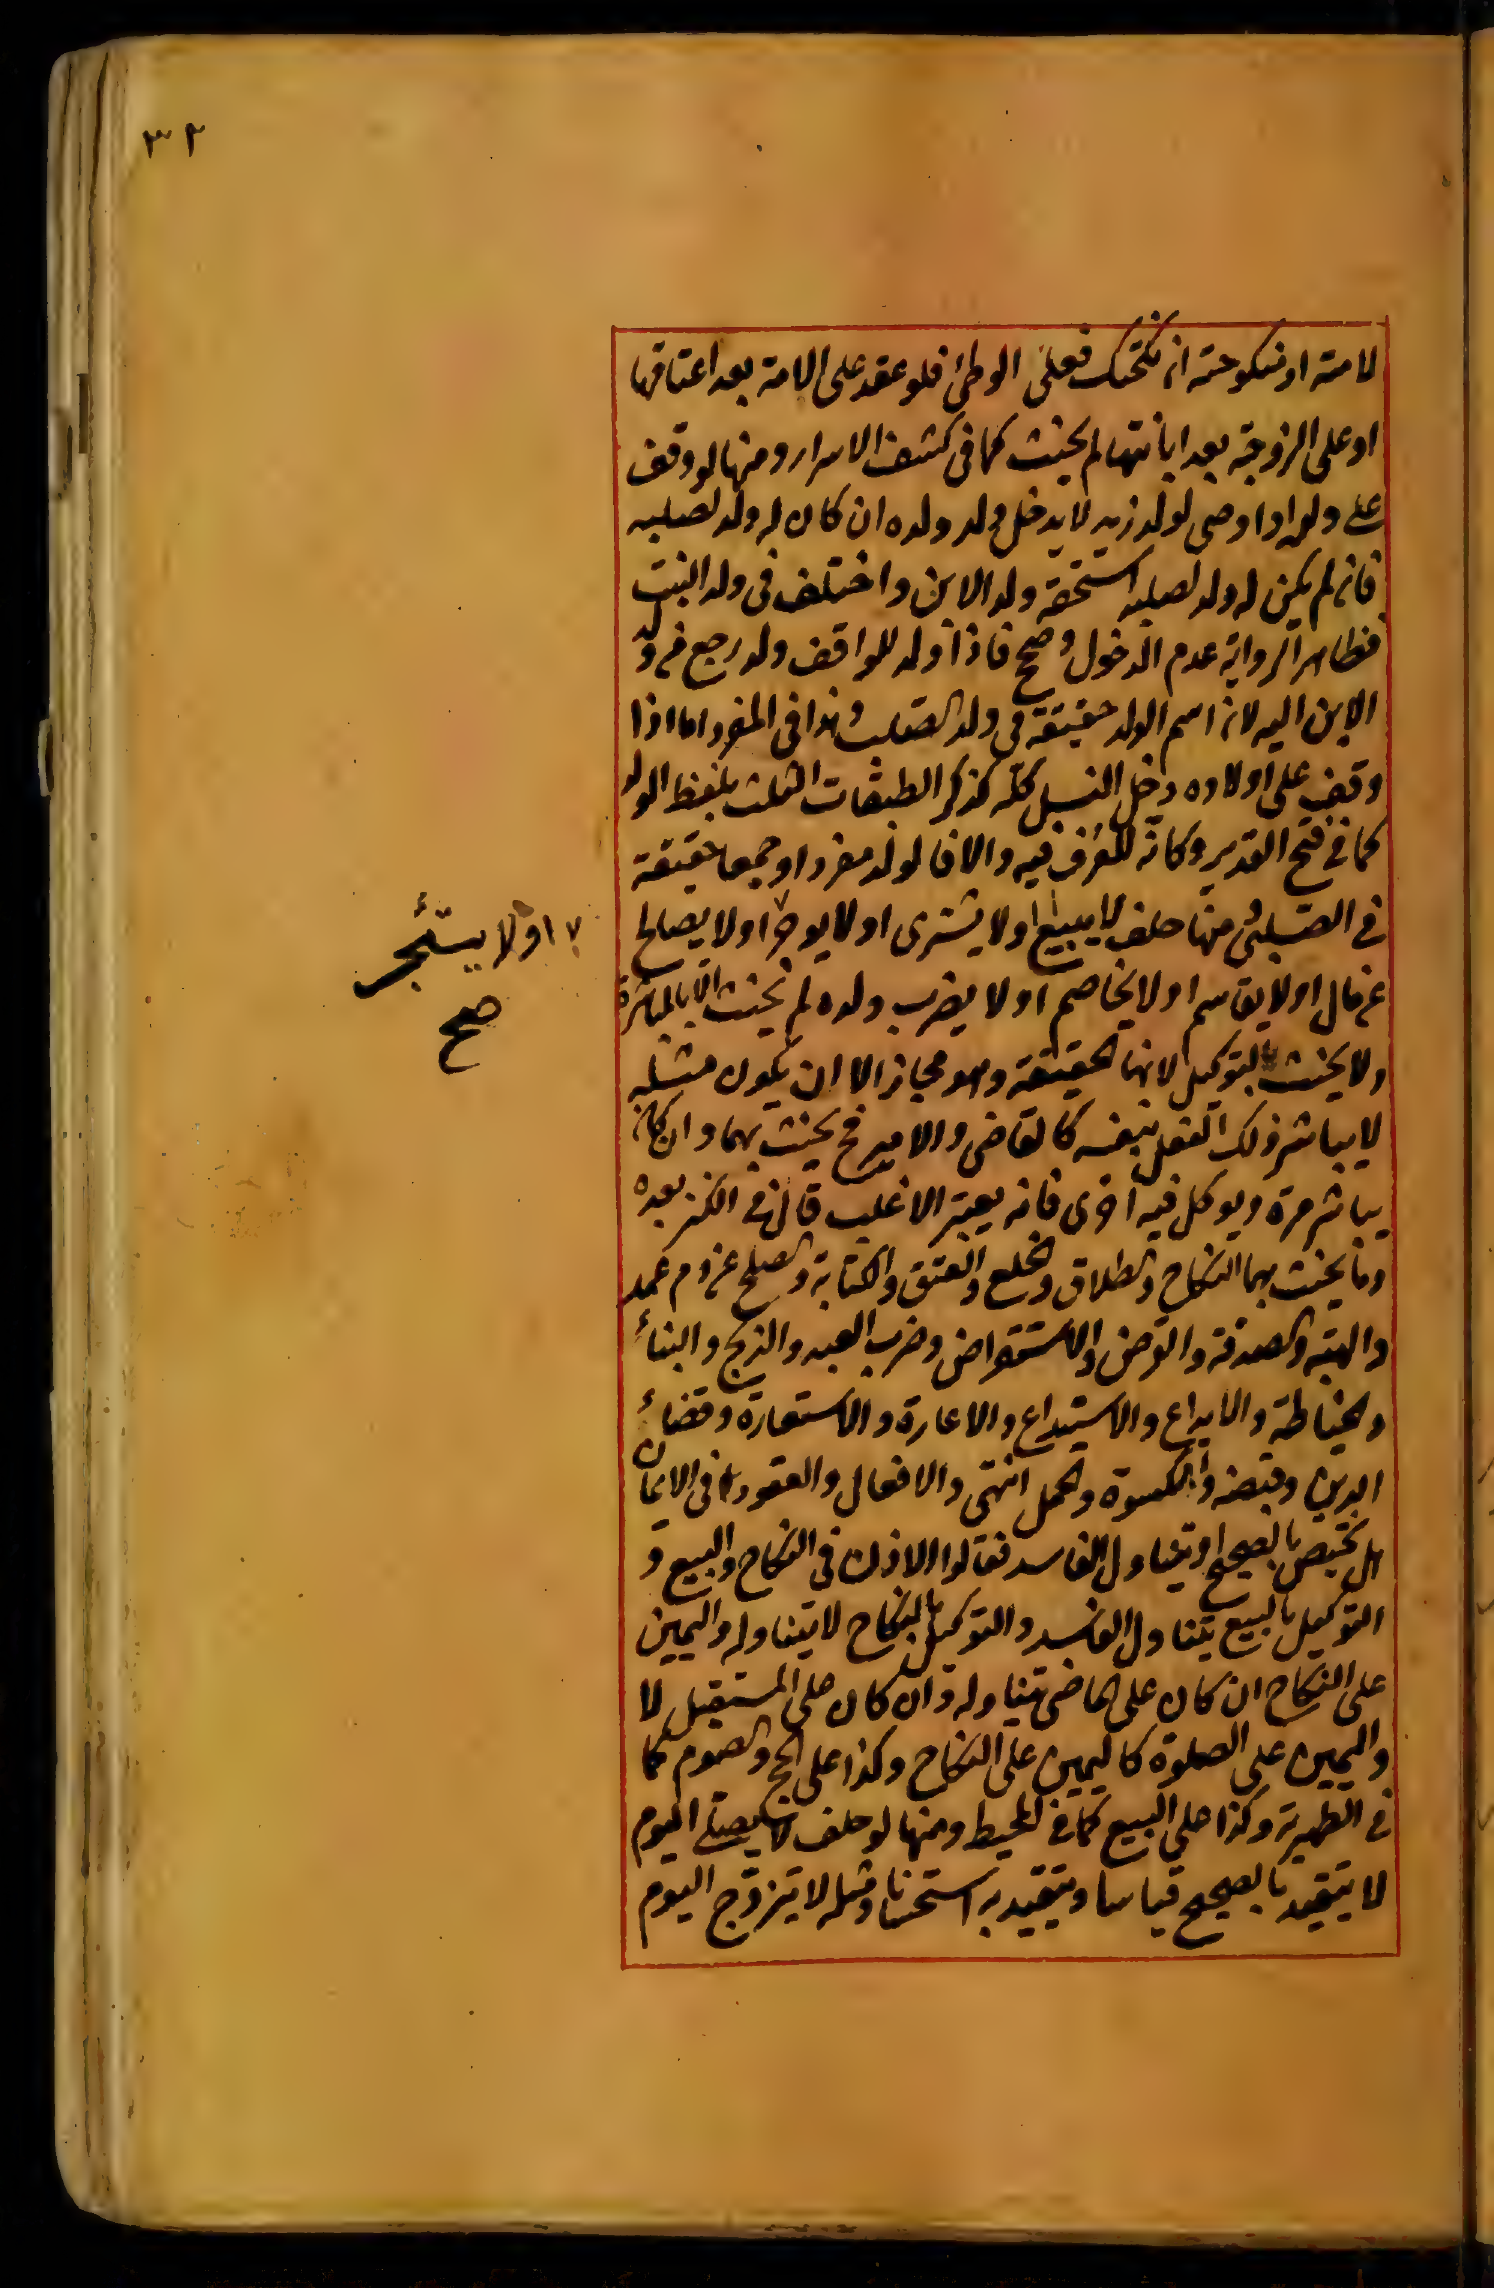 ٣٢
لامته او منكوحته ان نكحتك فعلى الوطئ فلو عقد على الامة بعد اعتاقها
او على الزوجة بعد ابانتها لم يحنث كما فى كشف الاسرار ومنها لو وقف
على ولده او اوصى لولد زيد لا يدخل ولد ولده ان كان له ولد لصلبه
فان لم يكن له ولد لصلبه استحقه ولد الابن واختلف فى ولد البنت
فظاهر الرواية عدم الدخول وصحح فاذا ولد للواقف ولد رجع من ولد
الابن اليه لان اسم الولد حقيقة فى ولد الصلب وهذا فى المفرد اما اذا
وقف على اولاده دخل النسل كله كذكر الطبقات الثلث بلفظ الولد
كما فى فتح القدير وكانه للعرف فيه والا فالولد مفردا وجمعا حقيقة
فى الصلبى ومنها حلف لا يبيع اولا يشترى اولا يوجر اولا يصالح
٧ اولا يستأجر
صح
عن مال اولا يقاسم اولا يخاصم اولا يضرب ولده لم يحنث الا بالمباشرة
ولا يحنث بالتوكيل لانها الحقيقة وهو مجاز الا ان يكون مثله
لا يباشر ذلك الفعل بنفسه كالقاضى والامير فح يحنث بهما وان كان
يباشر مرة ويوكل فيه اخرى فانه يعتبر الاغلب قال فى الكنز بعده
وما يحنث بهما النكاح والطلاق والخلع والعتق والكتابة والصلح عن دم عمد
والهبة والصدقة والقرض والاستقراض وضرب العبد والذبح والبناء
والخياطة والايداع والاستيداع والاعارة والاستعارة وقضاء
الدين وقبضه والكسوة والحمل انتهى والافعال والعقود فى الايمان
هل تختص بالصحيح او تتناول الفاسد فقالوا الاذن فى النكاح والبيع و
التوكيل بالبيع يتناول الفاسد والتوكيل بالنكاح لا يتناوله واليمين
على النكاح ان كان على الماضى تتناوله وان كان على المستقبل لا
واليمين على الصلوة كاليمين على النكاح وكذا على الحج والصوم كما
فى الظهيرية وكذا على البيع كما فى المحيط ومنها لو حلف لا يصلى اليوم
لا يتقيد بالصحيح قياسا ويتقيد به استحسانا ومثله لا يتزوج اليوم